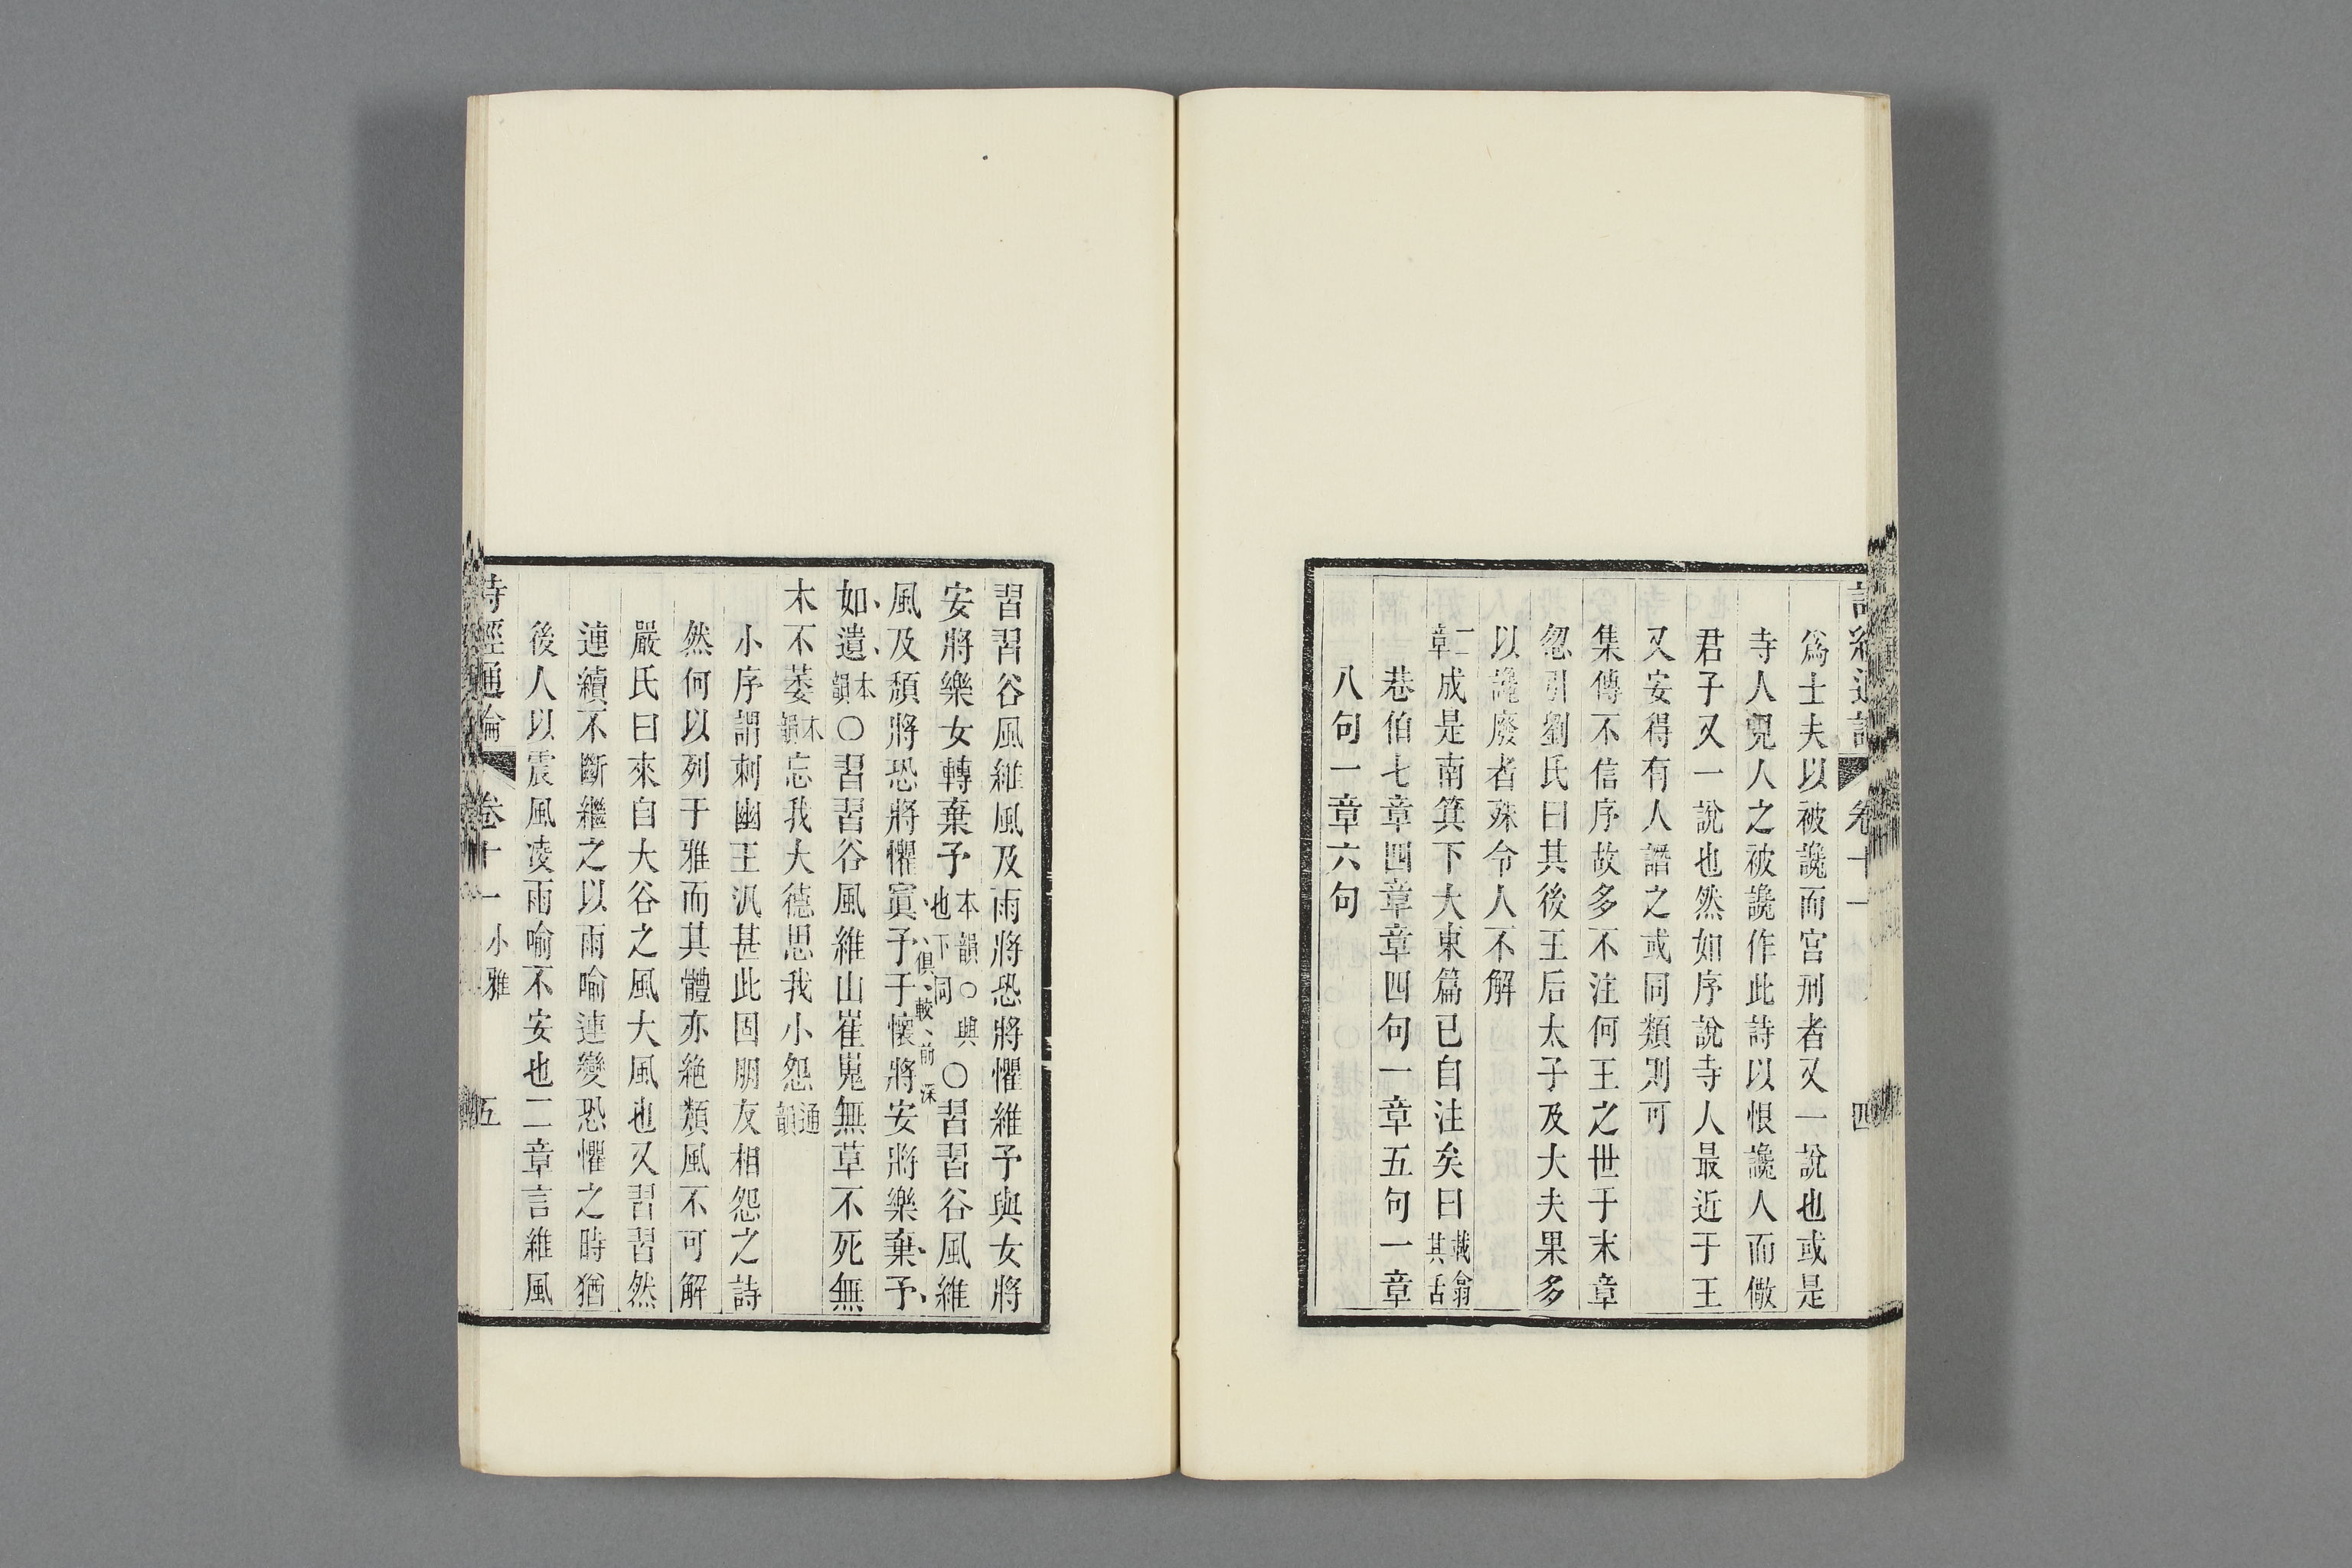 詩經通論 卷十一 四
爲士夫以被讒而宮刑者又一說也或是
寺人見人之被讒作此詩以恨讒人而儆
君子又一說也然如序說寺人最近于王
又安得有人譖之或同類則可
集傳不信序故多不注何王之世于末章
忽引劉氏曰其後王后太子及大夫果多
以讒廢者殊令人不解
二章成是南箕下大東篇已自注矣曰載翕其舌
巷伯七章四章章四句一章五句一章
八句一章六句
習習谷風維風及雨將恐將懼維予與女將
安將樂女轉棄予本韻○興也下同○習習谷風維
風及頹將恐將懼寘予于懷將安將樂棄予
俱較前深
如遺本韻○習習谷風維山崔嵬無草不死無
木不萎本韻忘我大德思我小怨通韻
小序謂刺幽王汎甚此固朋友相怨之詩
然何以列于雅而其體亦絶類風不可解
嚴氏曰來自大谷之風大風也又習習然
連續不斷繼之以雨喻連變恐懼之時猶
後人以震風凌雨喻不安也二章言維風
詩經通論 卷十一 小雅 五